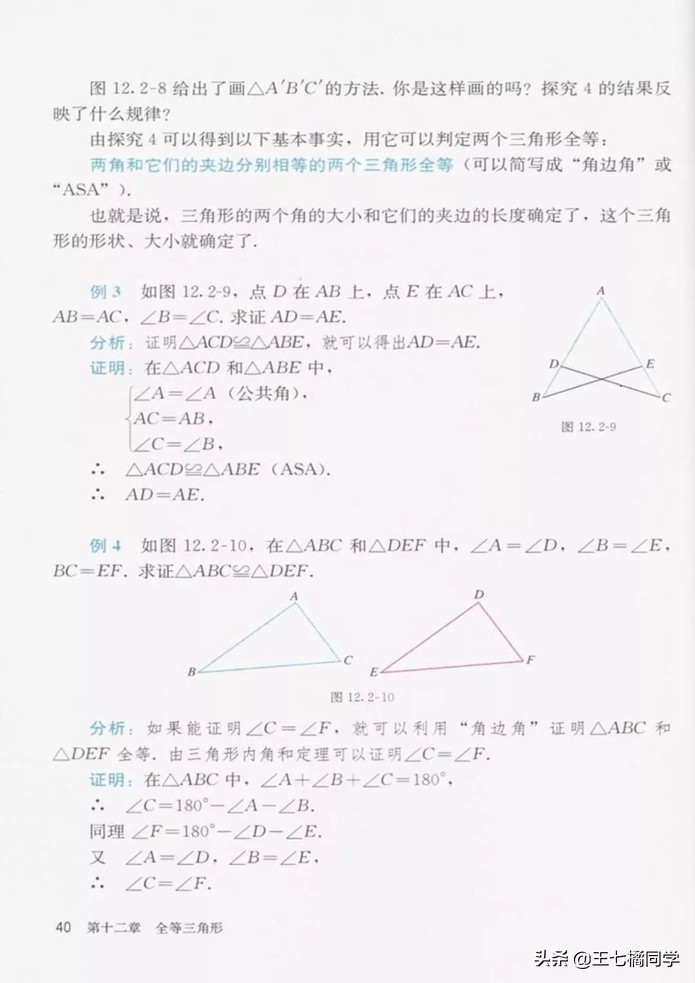 图 12.2-8 给出了画△A′B′C′的方法. 你是这样画的吗? 探究 4 的结果反
映了什么规律?
由探究 4 可以得到以下基本事实, 用它可以判定两个三角形全等:
两角和它们的夹边分别相等的两个三角形全等 (可以简写成 “角边角” 或
“ASA”).
也就是说, 三角形的两个角的大小和它们的夹边的长度确定了, 这个三角
形的形状、大小就确定了.
例 3 如图 12.2-9, 点 D 在 AB 上, 点 E 在 AC 上,
AB=AC, ∠B=∠C. 求证 AD=AE.
分析: 证明△ACD≌△ABE, 就可以得出AD=AE.
证明: 在△ACD 和△ABE 中,
∠A=∠A (公共角),
AC=AB,
∠C=∠B,
∴ △ACD≌△ABE (ASA).
∴ AD=AE.
A
D
E
B
C
图 12.2-9
例 4 如图 12.2-10, 在△ABC 和△DEF 中, ∠A=∠D, ∠B=∠E,
BC=EF. 求证△ABC≌△DEF.
A
B
C
D
E
F
图 12.2-10
分析: 如果能证明∠C=∠F, 就可以利用 “角边角” 证明△ABC 和
△DEF 全等. 由三角形内角和定理可以证明∠C=∠F.
证明: 在△ABC 中, ∠A+∠B+∠C=180°,
∴ ∠C=180°-∠A-∠B.
同理 ∠F=180°-∠D-∠E.
又 ∠A=∠D, ∠B=∠E,
∴ ∠C=∠F.
40 第十二章 全等三角形
头条 @王七橘同学